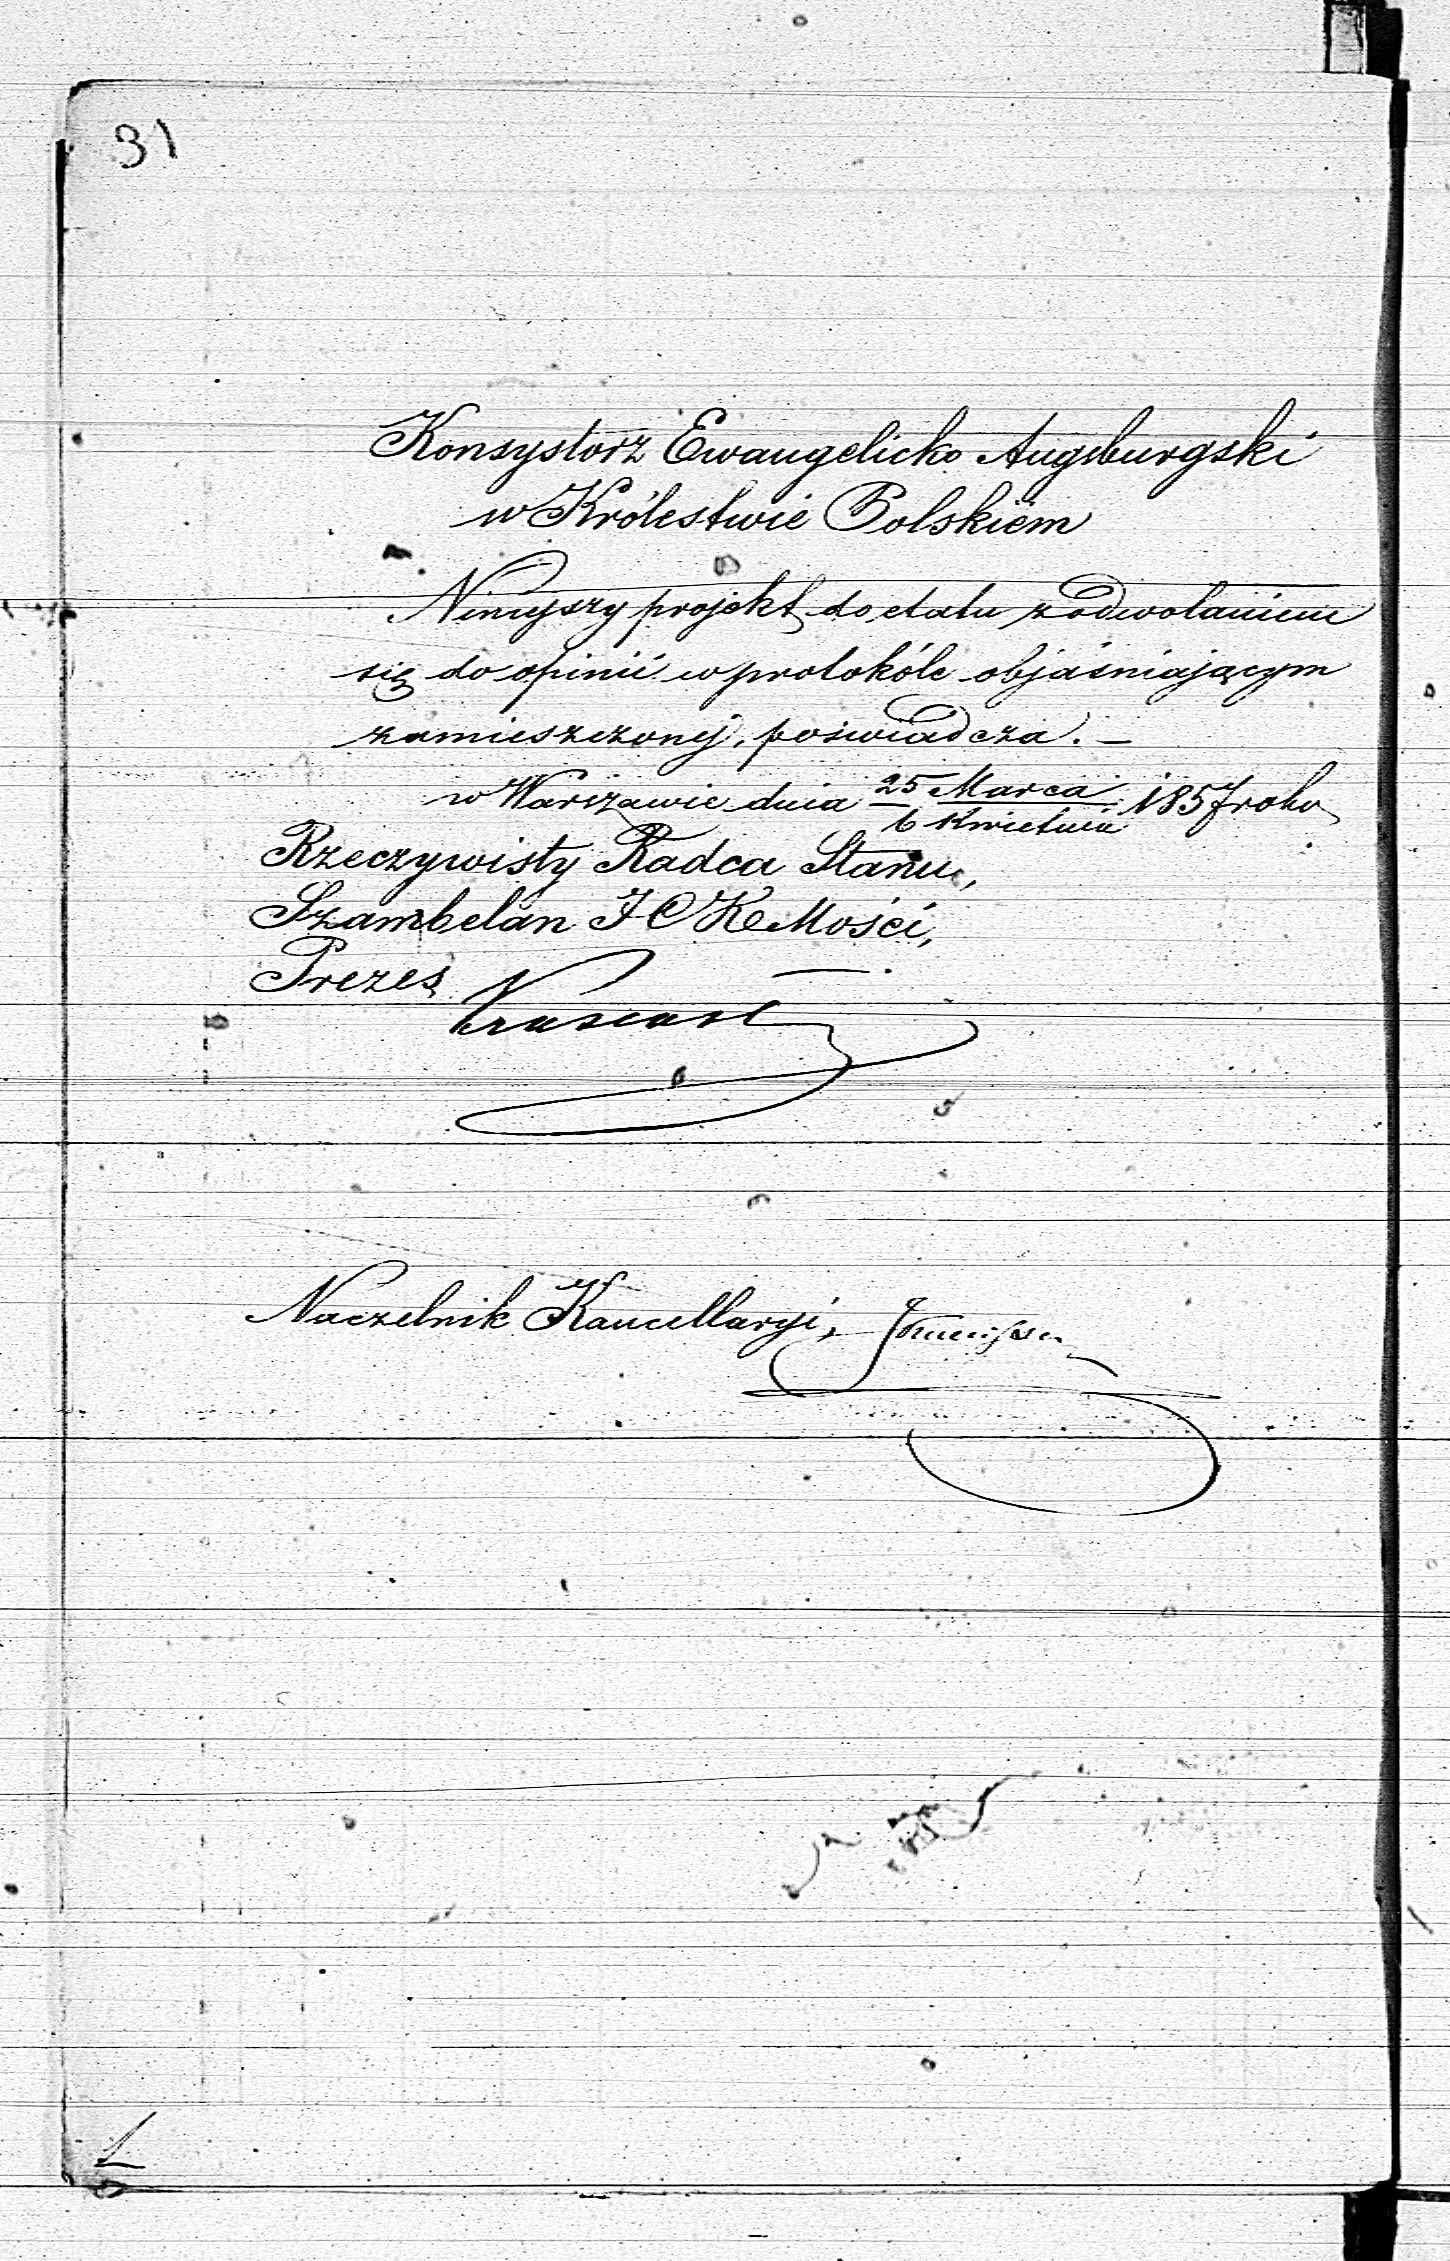 31
Konsystorz Ewangelicko Augsburgski
w Królestwie Polskiém
Niniejszy projekt do etatu z odwołaniem
się do opinii w protokóle objaśniającym
zamieszczonej, poświadcza. —
w Warszawie dnia 25 Marca / 6 Kwietnia 1857 roku
Rzeczywisty Radca Stanu,
Szambelan J C K Mości,
Prezes
Naczelnik Kancellaryi,